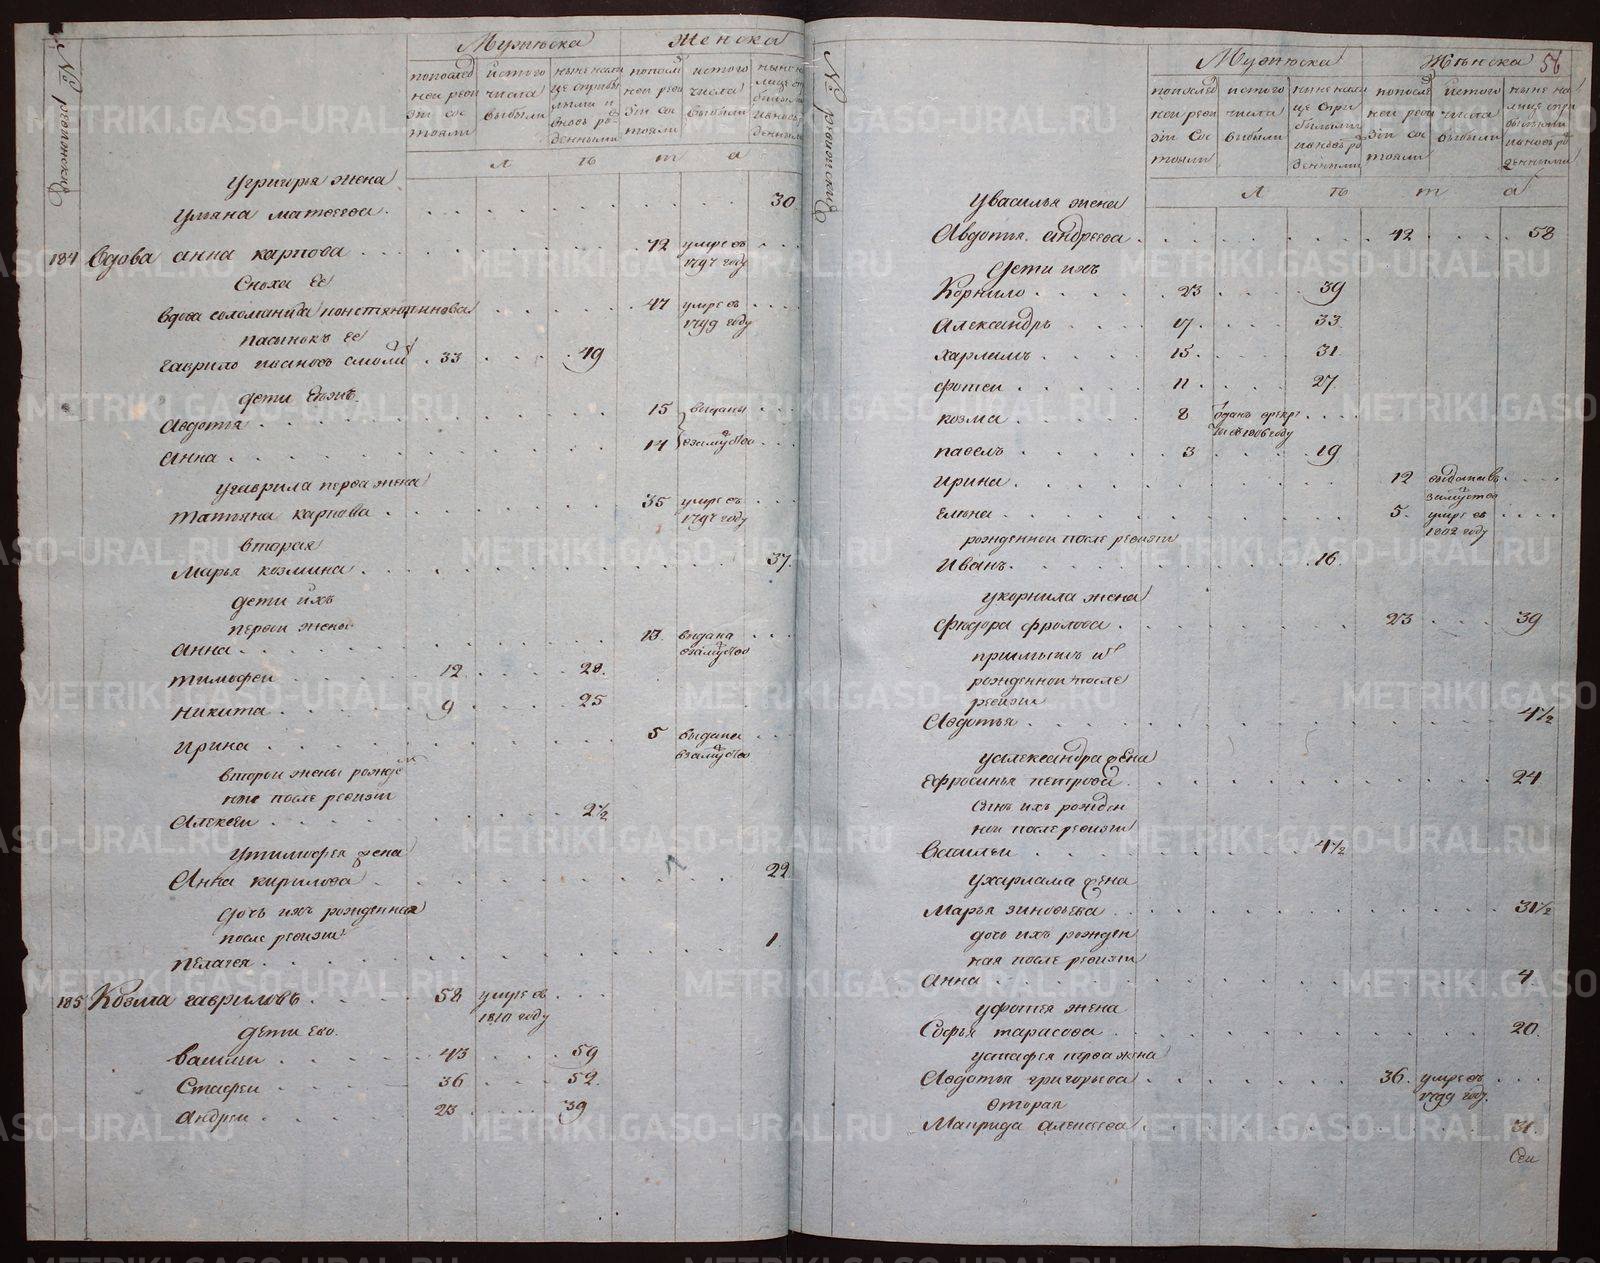 № ревижский
Мужеска Женска
попослед ней реви зiи сос тояли
истого числа выбыли
ныне нали це сприбы лыми и вновь ро жденными
попосле ней реви зiи сос тояли
истого числа выбыли
л ѣ т а
Угригорья жена
Ульяна матвеева . 30
184 Вдова анна карпова . 72 умре въ
1797 году
Сноха Ее
вдова соломанида константинова . 47 умре въ
1799 году
пасынокъ ее
гаврило ивановъ . 33 . 49
дети Евонъ
Авдотья . 15 выданы
Анна . 14 взамуство
угаврила перва жена
татьяна карпова . 35 умре въ
1797 году
вторая
Марья козмина . 37
дети ихъ
первой жены
Анна . 13 выдана
взамуство
тимофеи . 12 . 28
никита . 9 . 25
ирина . 5 выдана
взамуство
второй жены рожде
ные после ревизiи
Алексеи . 2½
Утимофея жена
Анна кирилова . 22
дочь ихъ рожденная
после ревизiи
пелагея . 1
185 Козма гавриловъ . 58 умре въ
1810 году
дети ево
василеи . 43 . 59
Стафеи . 36 . 52
андреи . 23 . 39
№ ревижский
Мужеска Женска 56
попослед ней реви зiи сос тояли
истого числа выбыли
ныне нали це спри былыми ивновь ро жденными
попосле ней реви зiи сос тояли
истого числа выбыли
ныне на лице спри былыми ивновь ро жденными
л ѣ т а
Увасилья жена
Авдотья андреева . 42 . 58
дети ихъ
Корнило . 23 . 39
Александръ . 17 . 33
харламъ . 15 . 31
фотеи . 11 . 27
козма . 8 зданъ врекр
ты въ 1806 году
павелъ . 3 . 19
ирина . 12 выдана въ
замуство
Елена . 5 умре въ
1802 году
рожденной после ревизiи
Иванъ . 16
укорнила жена
Федора фролова . 23 . 39
рожденной после
ревизiи
Авдотья . 4½
уалександра жена
Ефросинья петрова . 24
сынъ ихъ рожден
ной после ревизiи
Василеи . 4½
ухарлама жена
Марья зиновьева . 31½
дочь ихъ рожден
ная после ревизiи
Анна . 4
уфотея жена
Софья тарасова . 20
устафея перва жена
Авдотья григорьева . 36 умре въ
1799 году
вторая
Маврида алексеева . 31
METRIKI.GASO-URAL.RU